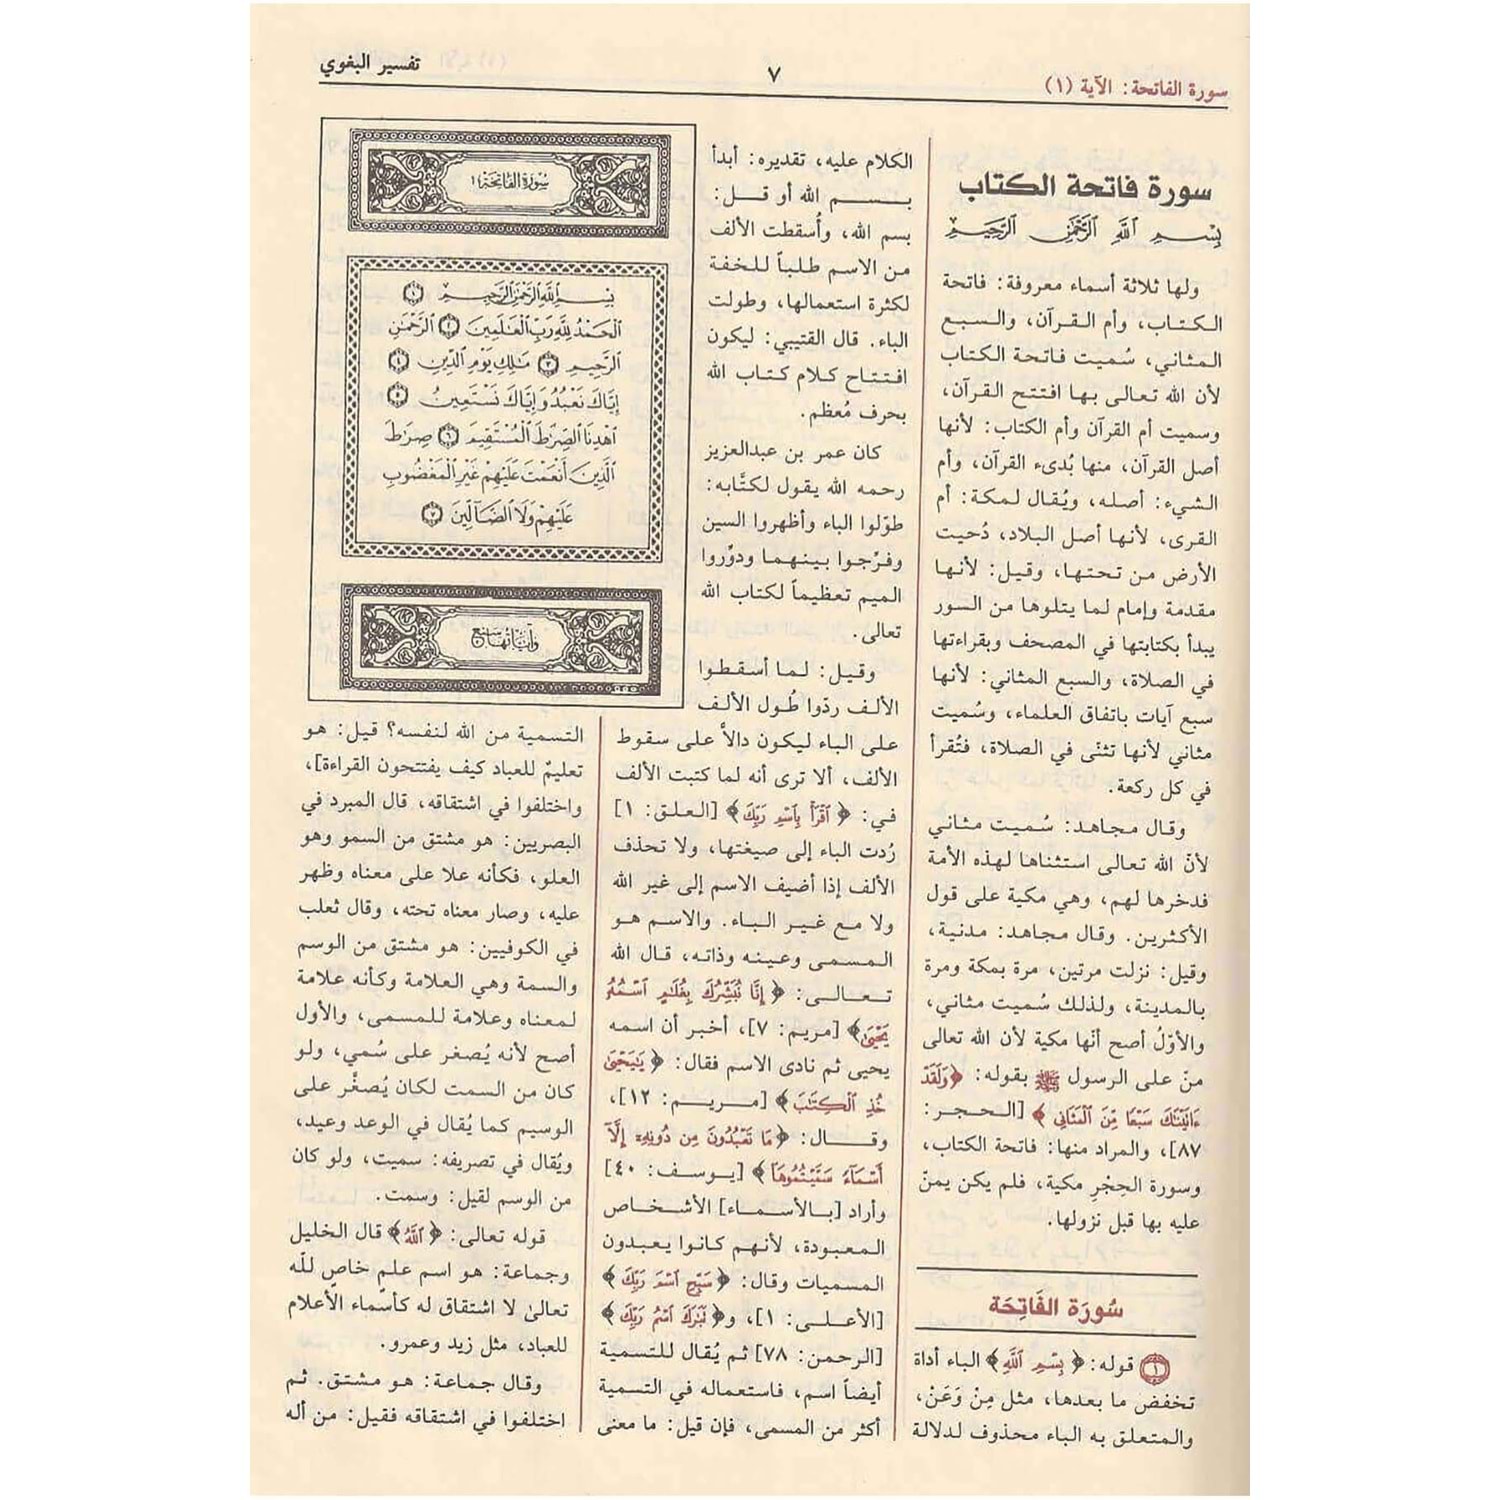 سورة الفاتحة: الآية (١)
٧
تفسير البغوي
سورة فاتحة الكتاب
بِسْمِ ٱللَّهِ ٱلرَّحْمَٰنِ ٱلرَّحِيمِ
ولها ثلاثة أسماء معروفة: فاتحة
الكتاب، وأم القرآن، والسبع
المثاني، سُميت فاتحة الكتاب
لأن الله تعالى بها افتتح القرآن،
وسميت أم القرآن وأم الكتاب: لأنها
أصل القرآن، منها بُدىء القرآن، وأم
الشيء: أصله، ويُقال لمكة: أم
القرى، لأنها أصل البلاد، دُحيت
الأرض من تحتها، وقيل: لأنها
مقدمة وإمام لما يتلوها من السور
يبدأ بكتابتها في المصحف وبقراءتها
في الصلاة، والسبع المثاني: لأنها
سبع آيات باتفاق العلماء، وسُميت
مثاني لأنها تثنّى في الصلاة، فتُقرأ
في كل ركعة.
وقال مجاهد: سُميت مثاني
لأنّ الله تعالى استثناها لهذه الأمة
فدخرها لهم، وهي مكية على قول
الأكثرين. وقال مجاهد: مدنية،
وقيل: نزلت مرتين، مرة بمكة ومرة
بالمدينة، ولذلك سُميت مثاني،
والأوّلُ أصح أنّها مكية لأن الله تعالى
منّ على الرسول ﷺ بقوله: ﴿وَلَقَدْ
ءَاتَيْنَٰكَ سَبْعًا مِّنَ ٱلْمَثَانِي﴾ [الحجر:
٨٧]، والمراد منها: فاتحة الكتاب،
وسورة الحِجْرِ مكية، فلم يكن يمنّ
عليه بها قبل نزولها.
سُورَة الفَاتِحَة
١ قوله: ﴿بِسْمِ ٱللَّهِ﴾ الباء أداة
تخفض ما بعدها، مثل مِنْ وَعَنْ،
والمتعلق به الباء محذوف لدلالة
الكلام عليه، تقديره: أبدأ
بسم الله أو قل:
بسم الله، وأُسقطت الألف
من الاسم طلباً للخفة
لكثرة استعمالها، وطولت
الباء. قال القتيبي: ليكون
افتتاح كلام كتاب الله
بحرف مُعظم.
كان عمر بن عبدالعزيز
رحمه الله يقول لكتَّابه:
طوّلوا الباء وأظهروا السين
وفرِّجوا بينهما ودوِّروا
الميم تعظيماً لكتاب الله
تعالى.
وقيل: لما أسقطوا
الألف ردّوا طُول الألف
على الباء ليكون دالاً على سقوط
الألف، ألا ترى أنه لما كتبت الألف
في: ﴿ٱقْرَأْ بِٱسْمِ رَبِّكَ﴾ [العلق: ١]
رُدت الباء إلى صيغتها، ولا تحذف
الألف إذا أضيف الاسم إلى غير الله
ولا مع غير الباء. والاسم هو
المسمى وعينه وذاته، قال الله
تعالى: ﴿إِنَّا نُبَشِّرُكَ بِغُلَٰمٍ ٱسْمُهُۥ
يَحْيَىٰ﴾ [مريم: ٧]، أخبر أن اسمه
يحيى ثم نادى الاسم فقال: ﴿يَٰيَحْيَىٰ
خُذِ ٱلْكِتَٰبَ﴾ [مريم: ١٢]،
وقال: ﴿مَا تَعْبُدُونَ مِن دُونِهِۦٓ إِلَّآ
أَسْمَآءً سَمَّيْتُمُوهَآ﴾ [يوسف: ٤٠]
وأراد [بالأسماء] الأشخاص
المعبودة، لأنهم كانوا يعبدون
المسميات وقال: ﴿سَبِّحِ ٱسْمَ رَبِّكَ﴾
[الأعلى: ١]، و﴿تَبَٰرَكَ ٱسْمُ رَبِّكَ﴾
[الرحمن: ٧٨] ثم يُقال للتسمية
أيضاً اسم، فاستعماله في التسمية
أكثر من المسمى، فإن قيل: ما معنى
سُورَةُ الْفَاتِحَةِ ١
بِسْمِ ٱللَّهِ ٱلرَّحْمَٰنِ ٱلرَّحِيمِ ١
ٱلْحَمْدُ لِلَّهِ رَبِّ ٱلْعَٰلَمِينَ ٢ ٱلرَّحْمَٰنِ
ٱلرَّحِيمِ ٣ مَٰلِكِ يَوْمِ ٱلدِّينِ ٤
إِيَّاكَ نَعْبُدُ وَإِيَّاكَ نَسْتَعِينُ ٥
ٱهْدِنَا ٱلصِّرَٰطَ ٱلْمُسْتَقِيمَ ٦ صِرَٰطَ
ٱلَّذِينَ أَنْعَمْتَ عَلَيْهِمْ غَيْرِ ٱلْمَغْضُوبِ
عَلَيْهِمْ وَلَا ٱلضَّآلِّينَ ٧
وَآيَاتُهَا سَبْع
التسمية من الله لنفسه؟ قيل: هو
تعليمٌ للعباد كيف يفتتحون القراءة]،
واختلفوا في اشتقاقه، قال المبرد في
البصريين: هو مشتق من السمو وهو
العلو، فكأنه علا على معناه وظهر
عليه، وصار معناه تحته، وقال ثعلب
في الكوفيين: هو مشتق من الوسم
والسمة وهي العلامة وكأنه علامة
لمعناه وعلامة للمسمى، والأول
أصح لأنه يُصغر على سُمي، ولو
كان من السمت لكان يُصغَّر على
الوسيم كما يُقال في الوعد وعيد،
ويُقال في تصريفه: سميت، ولو كان
من الوسم لقيل: وسمت.
قوله تعالى: ﴿ٱللَّهِ﴾ قال الخليل
وجماعة: هو اسم علم خاص للّه
تعالىٰ لا اشتقاق له كأسماء الأعلام
للعباد، مثل زيد وعمرو.
وقال جماعة: هو مشتق. ثم
اختلفوا في اشتقاقه فقيل: من أله